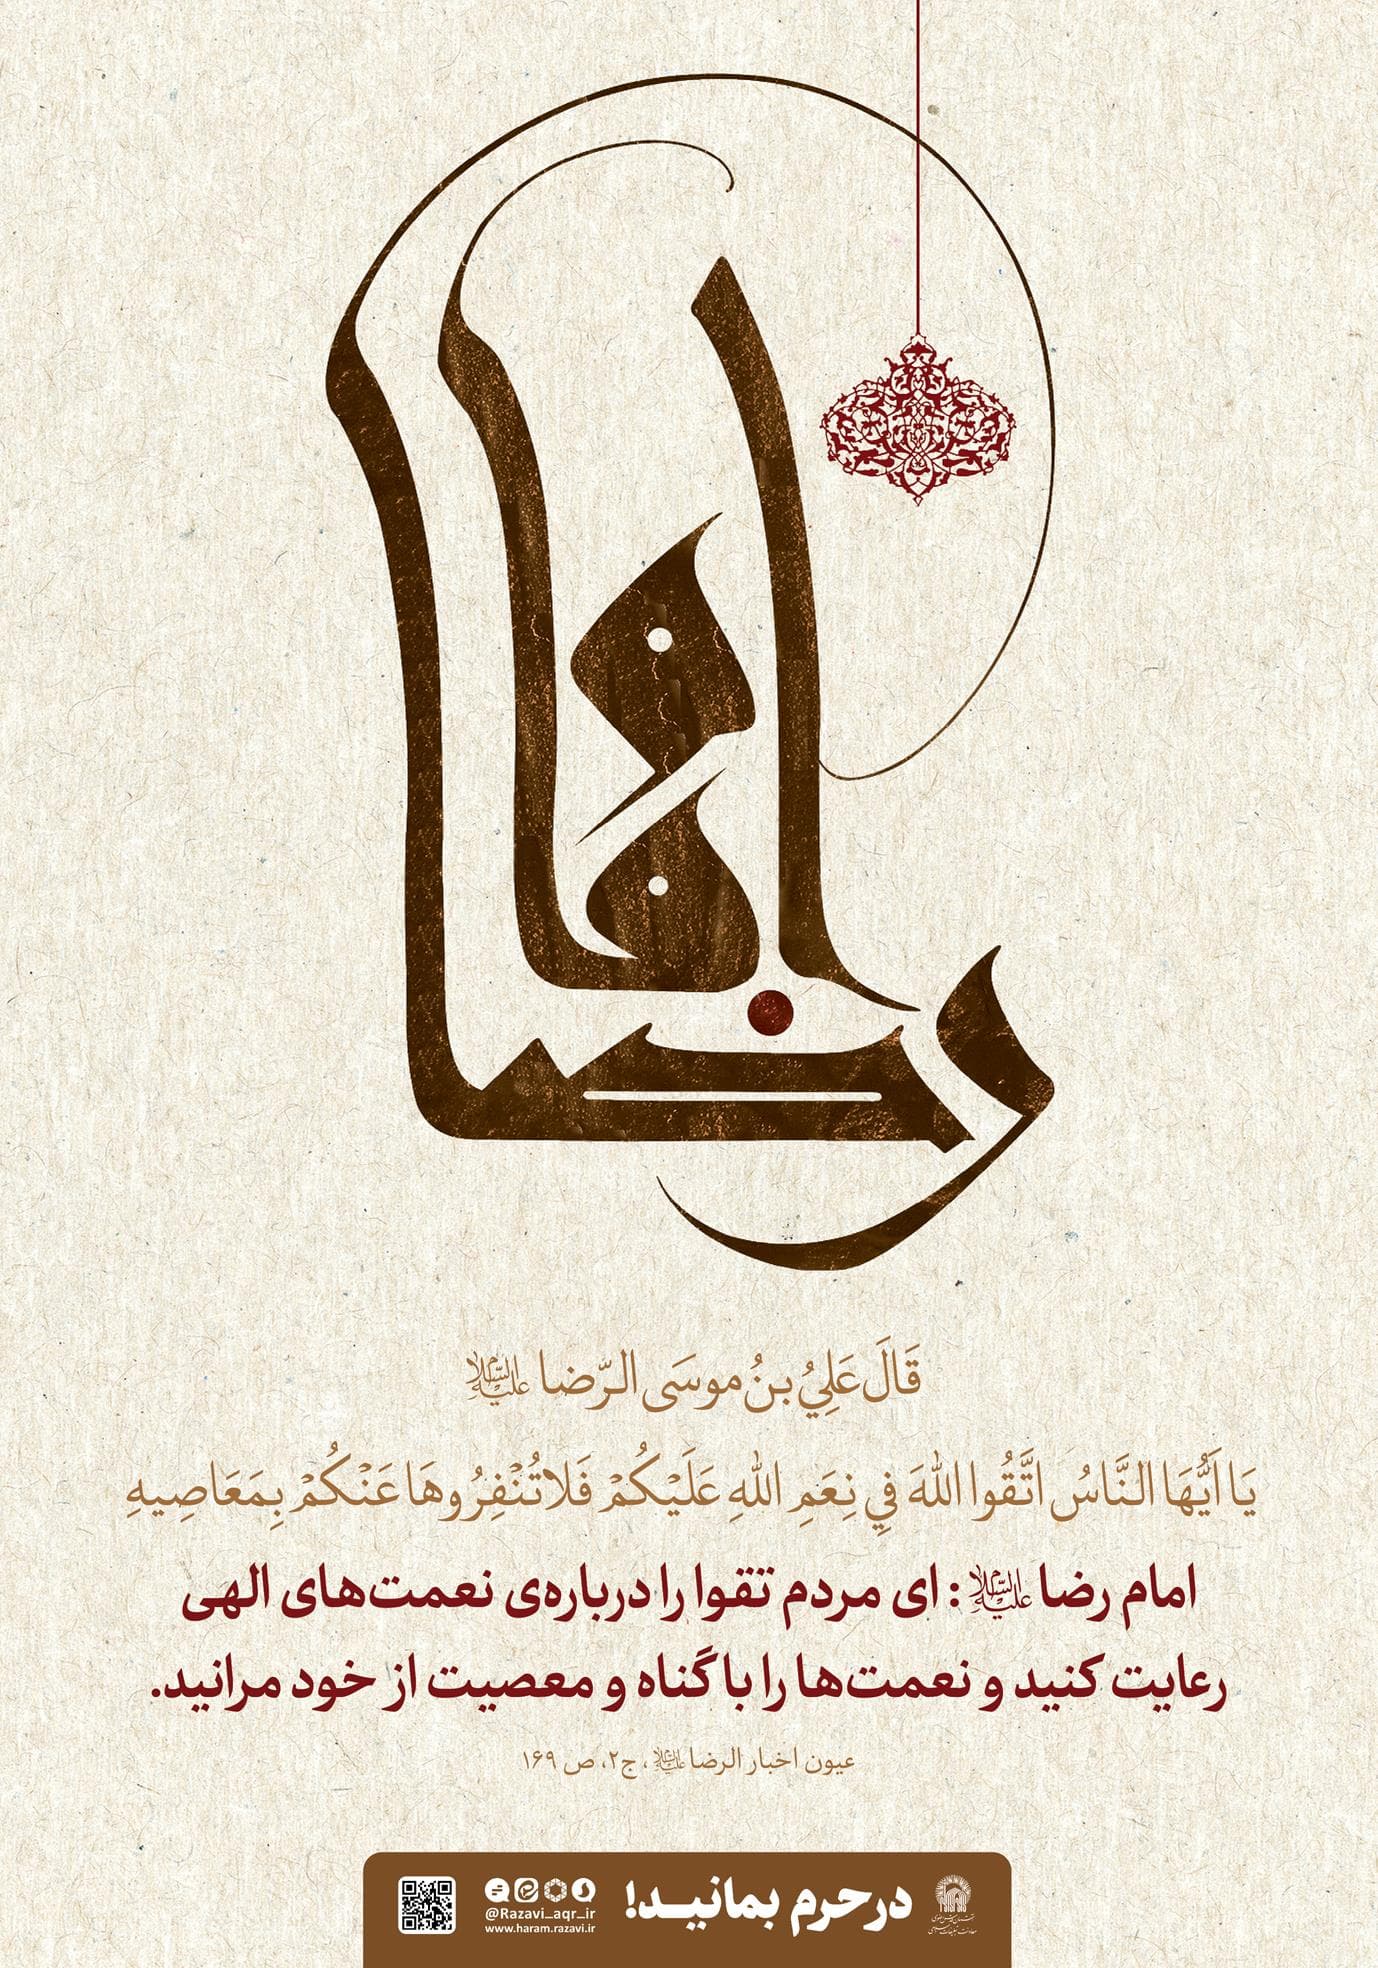 امام رضا
قَالَ عَلِيُ بنُ موسَی الرّضا علیه السلام
يَا أَيُّهَا النَّاسُ اتَّقُوا اللهَ فِي نِعَمِ اللهِ عَلَيْكُمْ فَلا تُنْفِرُوهَا عَنْكُمْ بِمَعَاصِيهِ
امام رضا علیه السلام: ای مردم تقوا را درباره‌ی نعمت‌های الهی
رعایت کنید و نعمت‌ها را با گناه و معصیت از خود مرانید.
عیون اخبار الرضا علیه السلام، ج۲، ص ۱۶۹
در حرم بمانید!
@Razavi_aqr_ir
www.haram.razavi.ir